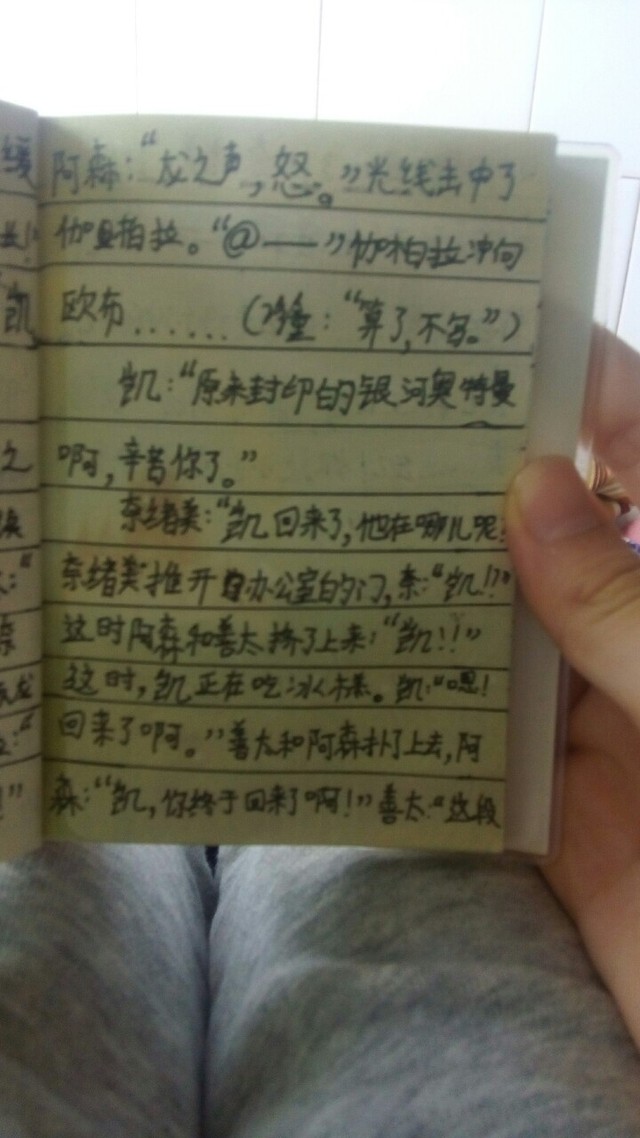 缓
阿森：“龙之声，怒。”光线击中了
伽旦柏拉。“@——”伽柏拉冲向
欧布......（：“算了，不多。”）
凯
凯：“原来封印的银河奥特曼
之
啊，辛苦你了。”
奈绪美：“凯回来了，他在哪儿呢？
奈绪美推开办公室的门，奈：“凯！？”
这时阿森和善太挤了上来：“凯！！”
这时，凯正在吃冰棒。凯：“嗯！
回来了啊。”善太和阿森扑了上去，阿
森：“凯，你终于回来了啊！”善太：“这段